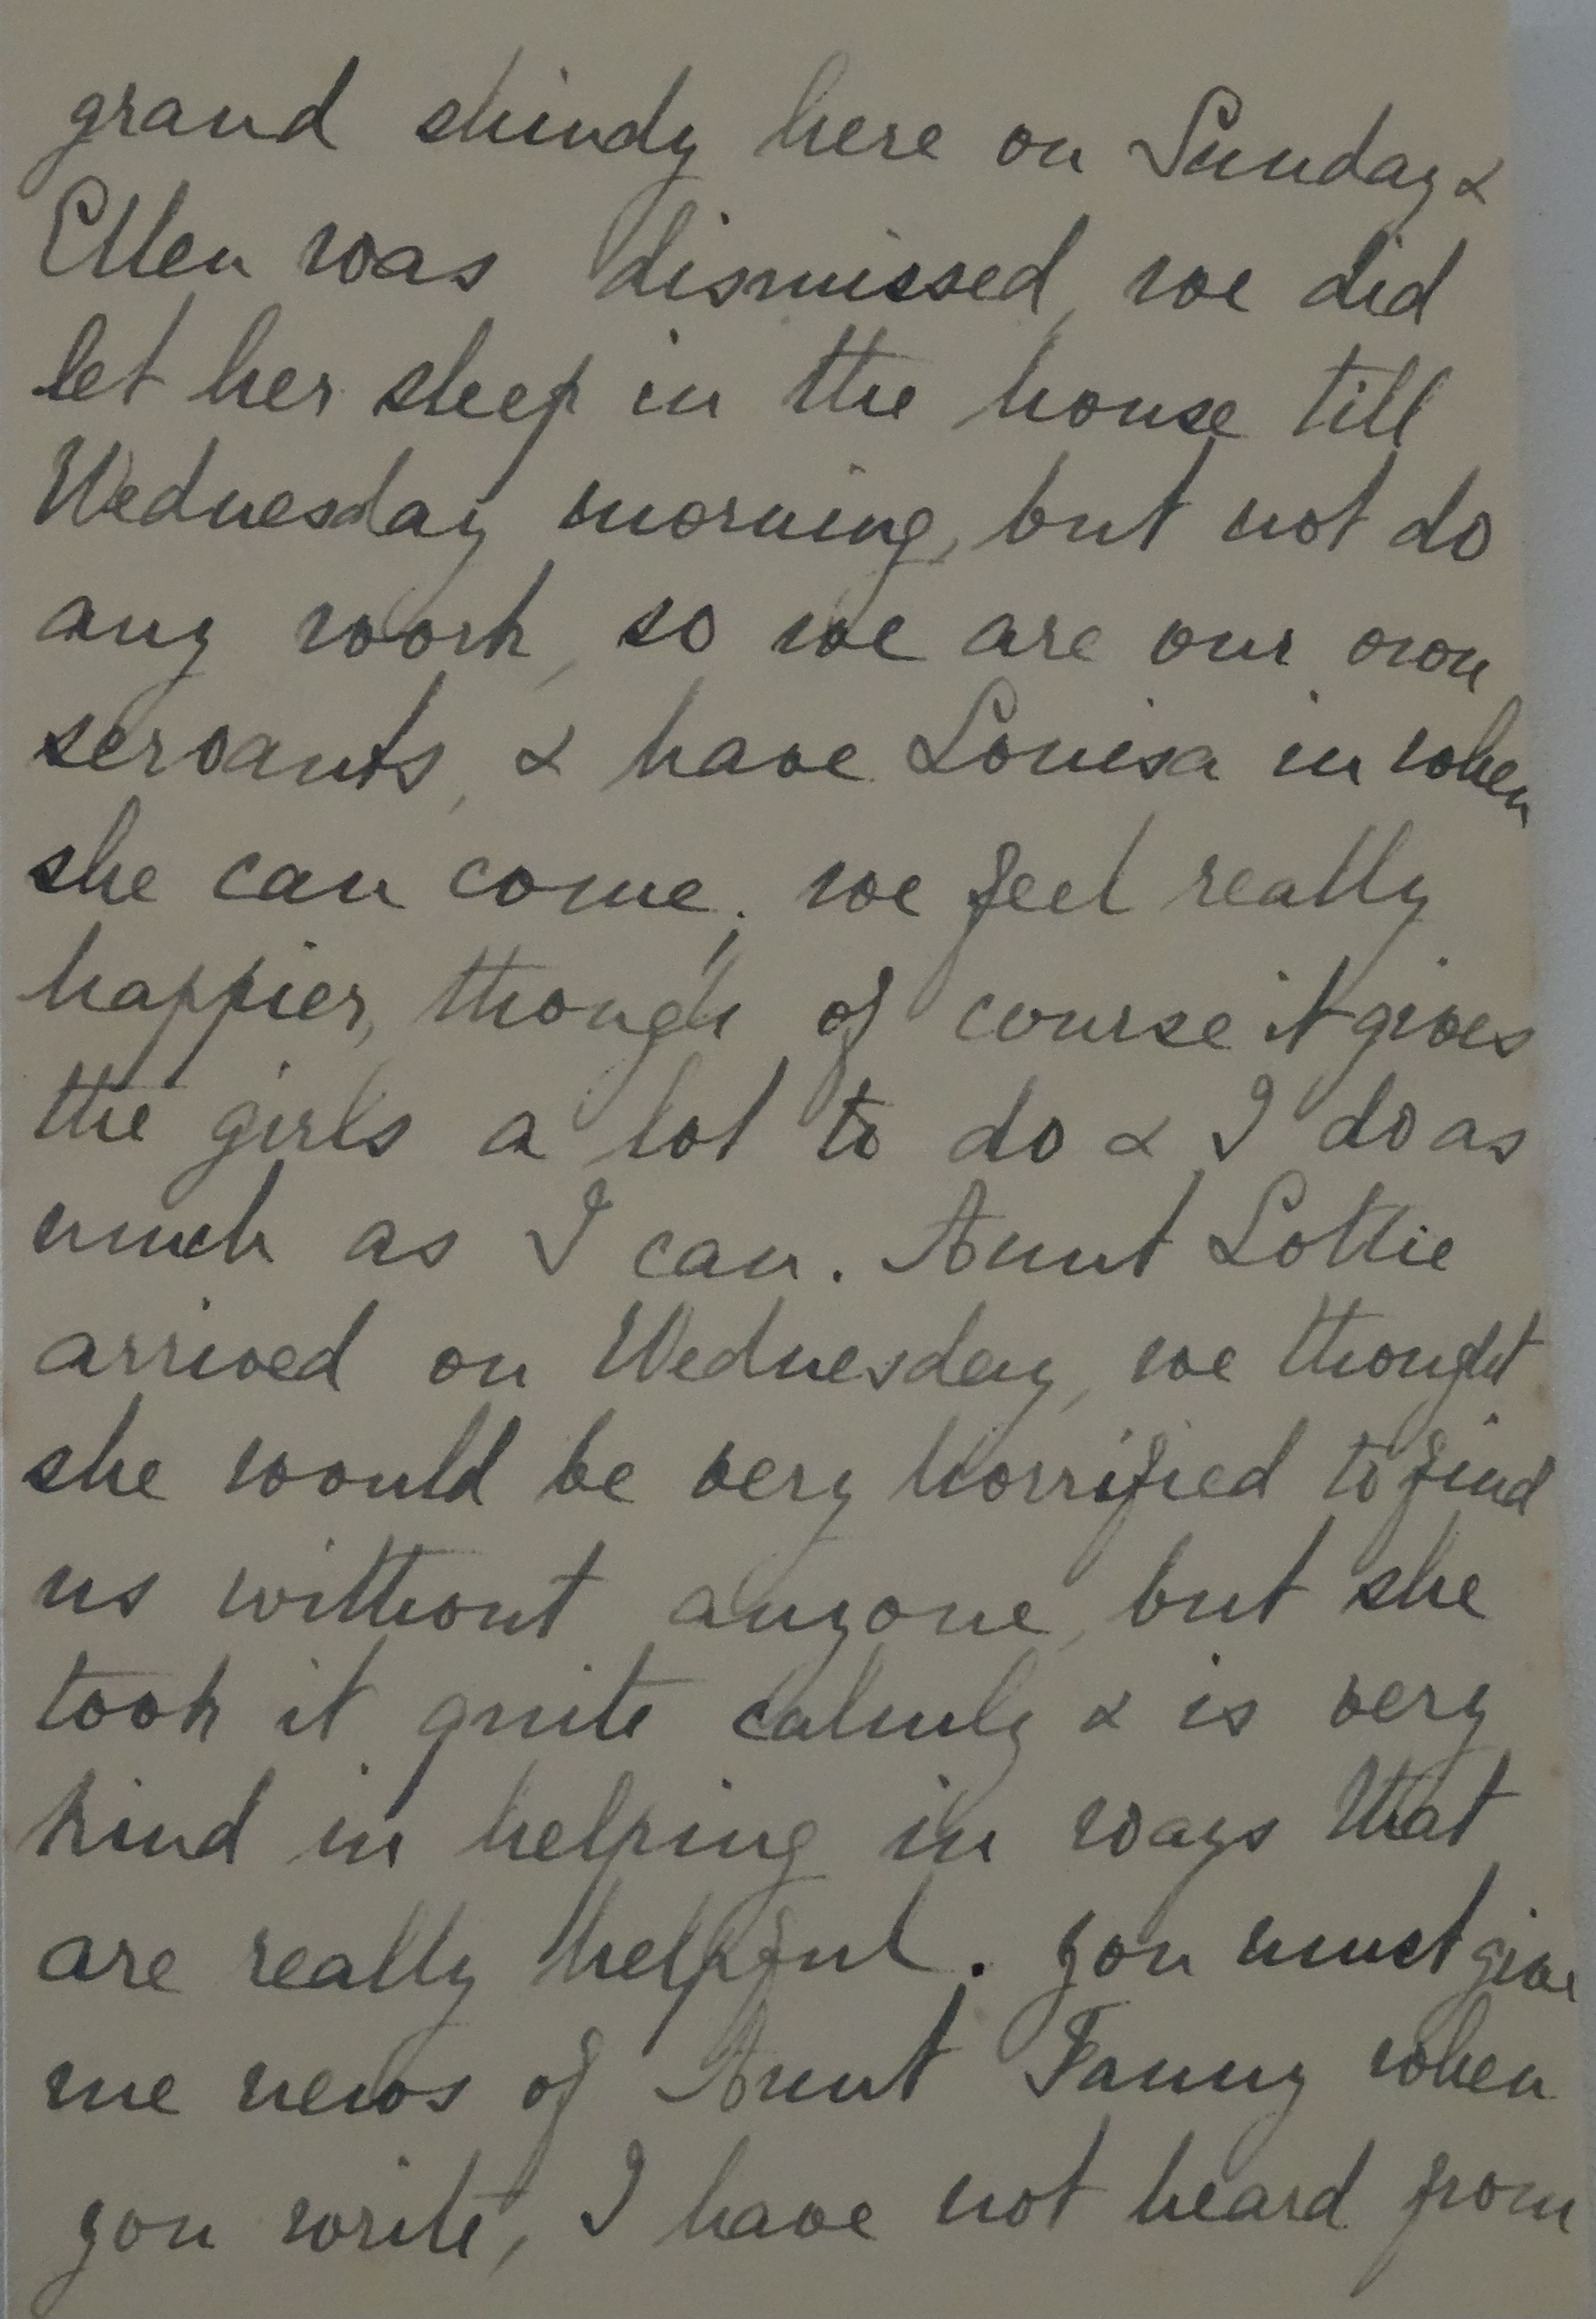 grand shindy here on Sunday &
Ellen was dismissed, we did
let her sleep in the house till
Wednesday morning, but not do
any work, so we are our own
servants, & have Louisa in when
she can come, we feel really
happier, though of course it gives
the girls a lot to do & I do as
much as I can. Aunt Lottie
arrived on Wednesday, we thought
she would be very horrified to find
us without anyone, but she
took it quite calmly & is very
kind in helping in ways that
are really helpful. you must give
me news of Aunt Fanny when
you write, I have not heard from